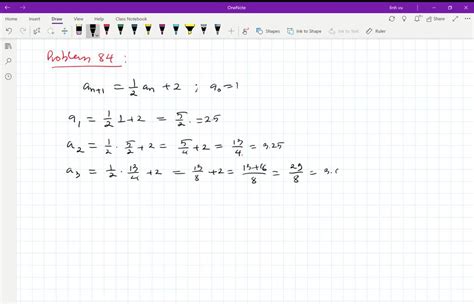 OneNote
linh vu
File Home Insert Draw View Help Class Notebook
Share
Shapes Ink to Shape Ink to Math
Problem 84 :
aₙ₊₁ = 1/2 aₙ + 2 ; a₀ = 1
a₁ = 1/2 1 + 2 = 5/2 . = 25
a₂ = 1/2 · 5/2 + 2 = 5/4 + 2 = 13/4 = 3.25
a₃ = 1/2 · 13/4 + 2 = 13/8 + 2 = 13+16/8 = 29/8 = 3.6